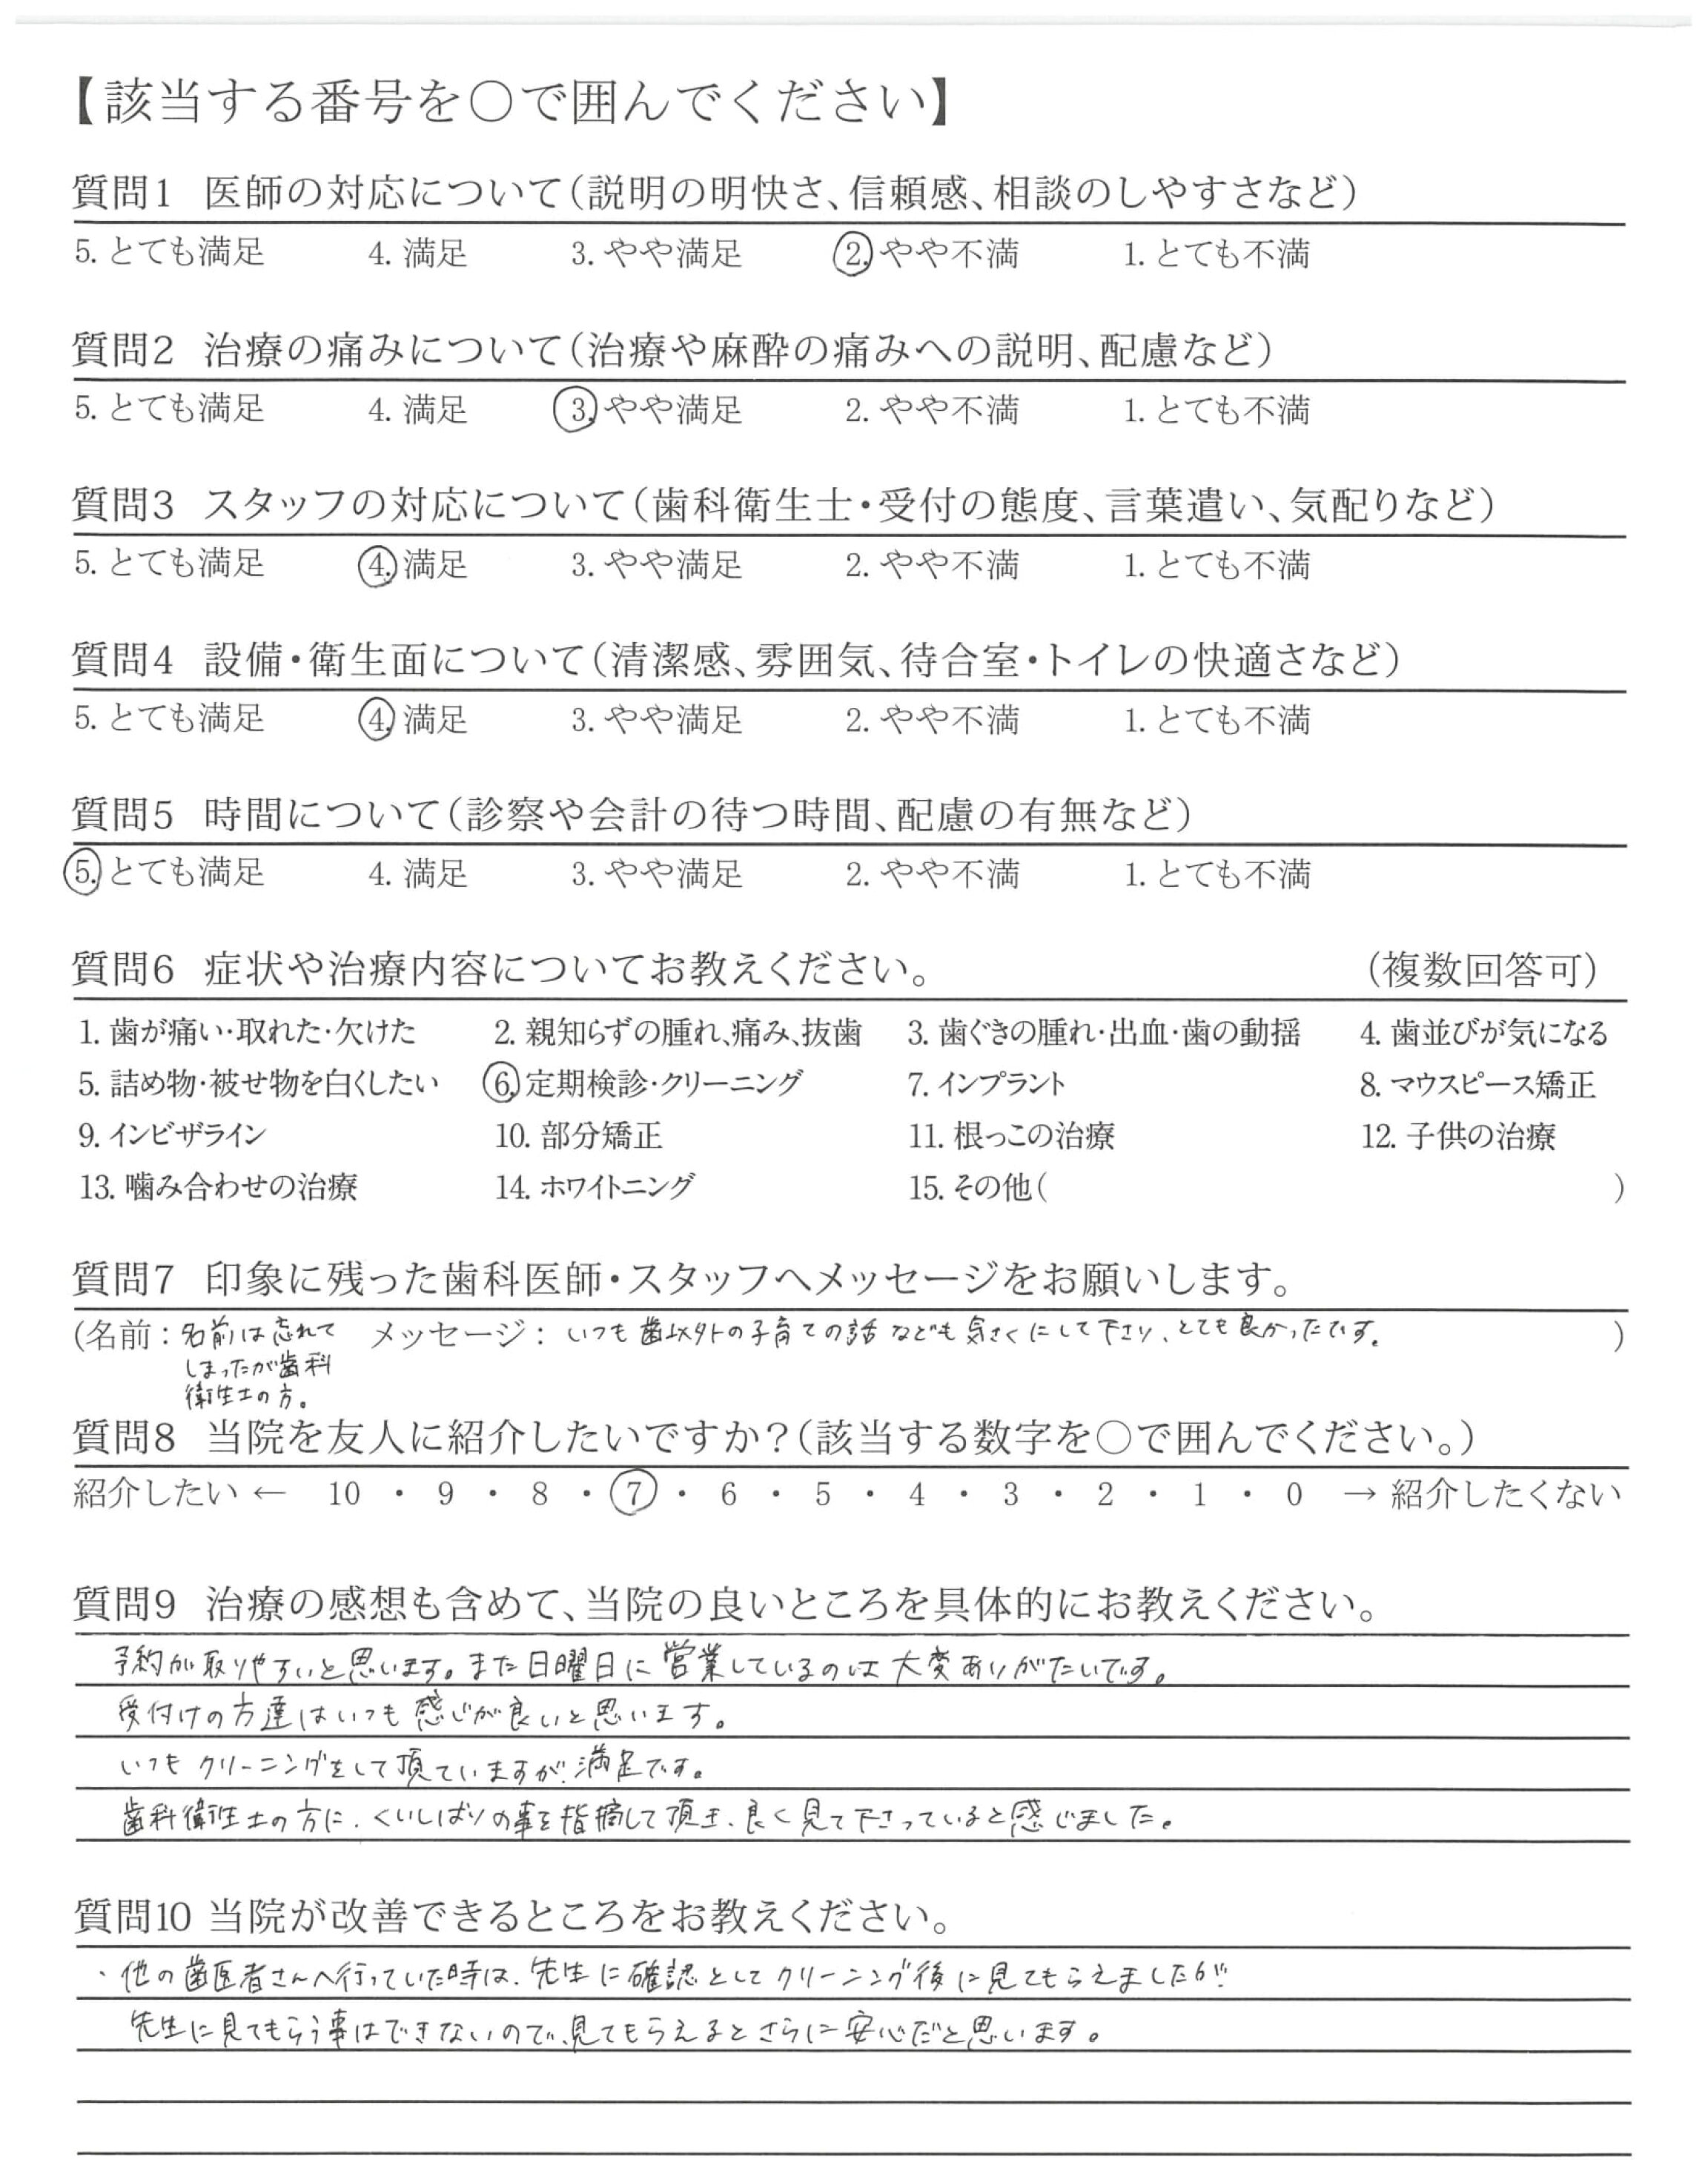 【該当する番号を〇で囲んでください】
質問1 医師の対応について(説明の明快さ、信頼感、相談のしやすさなど)
5. とても満足 4. 満足 3. やや満足 2. やや不満 1. とても不満
質問2 治療の痛みについて(治療や麻酔の痛みへの説明、配慮など)
5. とても満足 4. 満足 3. やや満足 2. やや不満 1. とても不満
質問3 スタッフの対応について(歯科衛生士・受付の態度、言葉遣い、気配りなど)
5. とても満足 4. 満足 3. やや満足 2. やや不満 1. とても不満
質問4 設備・衛生面について(清潔感、雰囲気、待合室・トイレの快適さなど)
5. とても満足 4. 満足 3. やや満足 2. やや不満 1. とても不満
質問5 時間について(診察や会計の待つ時間、配慮の有無など)
5. とても満足 4. 満足 3. やや満足 2. やや不満 1. とても不満
質問6 症状や治療内容についてお教えください。 (複数回答可)
1. 歯が痛い・取れた・欠けた 2. 親知らずの腫れ、痛み、抜歯 3. 歯ぐきの腫れ・出血・歯の動揺 4. 歯並びが気になる
5. 詰め物・被せ物を白くしたい 6. 定期検診・クリーニング 7. インプラント 8. マウスピース矯正
9. インビザライン 10. 部分矯正 11. 根っこの治療 12. 子供の治療
13. 噛み合わせの治療 14. ホワイトニング 15. その他( )
質問7 印象に残った歯科医師・スタッフへメッセージをお願いします。
(名前：名前は忘れて メッセージ： いつも歯以外の子育ての話なども気さくにして下さり、とても良かったです。 )
しまったが歯科
衛生士の方。
質問8 当院を友人に紹介したいですか？(該当する数字を〇で囲んでください。)
紹介したい ← 10 ・ 9 ・ 8 ・ 7 ・ 6 ・ 5 ・ 4 ・ 3 ・ 2 ・ 1 ・ 0 → 紹介したくない
質問9 治療の感想も含めて、当院の良いところを具体的にお教えください。
予約が取りやすいと思います。また日曜日に営業しているのは大変ありがたいです。
受付けの方達はいつも感じが良いと思います。
いつもクリーニングをして頂ていますが、満足です。
歯科衛生士の方に、くいしばりの事を指摘して頂き、良く見て下さっていると感じました。
質問10 当院が改善できるところをお教えください。
・他の歯医者さんへ行っていた時は、先生に確認としてクリーニング後に見てもらえましたが、
先生に見てもらう事はできないので、見てもらえるとさらに安心だと思います。